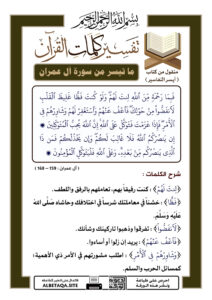 بسم الله الرحمن الرحيم
تفسير كلمات القرآن
منقول من كتاب
( أيسر التفاسير )
ما تيسر من سورة آل عمران
فَبِمَا رَحْمَةٍ مِّنَ اللَّهِ لِنتَ لَهُمْ وَلَوْ كُنتَ فَظًّا غَلِيظَ الْقَلْبِ
لَانفَضُّوا مِنْ حَوْلِكَ فَاعْفُ عَنْهُمْ وَاسْتَغْفِرْ لَهُمْ وَشَاوِرْهُمْ فِي
الْأَمْرِ فَإِذَا عَزَمْتَ فَتَوَكَّلْ عَلَى اللَّهِ إِنَّ اللَّهَ يُحِبُّ الْمُتَوَكِّلِينَ
إِن يَنصُرْكُمُ اللَّهُ فَلَا غَالِبَ لَكُمْ وَإِن يَخْذُلْكُمْ فَمَن ذَا
الَّذِي يَنصُرُكُم مِّن بَعْدِهِ وَعَلَى اللَّهِ فَلْيَتَوَكَّلِ الْمُؤْمِنُونَ
( آل عمران : 159 - 160 )
شرح الكلمات :
﴿لِنتَ لَهُمْ﴾ : كنت رفيقا بهم، تعاملهم بالرفق واللطف.
﴿فَظًّا﴾ : خشنا في معاملتك شرسا في اخلاقك وحاشاه صلى الله
عليه وسلم.
﴿لَانفَضُّوا﴾ : تفرقوا وذهبوا تاركينك وشأنك.
﴿فَاعْفُ عَنْهُمْ﴾ : يريد إن زلوا أو أساءوا.
﴿وَشَاوِرْهُمْ فِي الْأَمْرِ﴾ : اطلب مشورتهم في الأمر ذي الأهمية ؛
كمسائل الحرب والسلم.
ALBETAQA.SITE